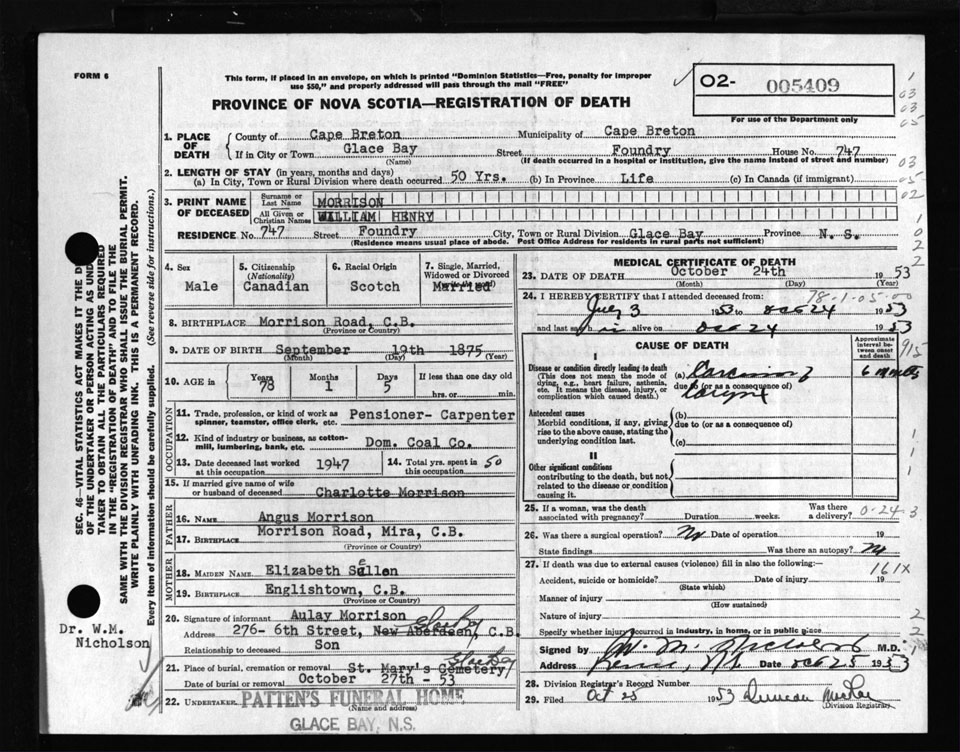 FORM 6
This form, if placed in an envelope, on which is printed "Dominion Statistics—Free, penalty for improper
use $50," and properly addressed will pass through the mail "FREE"
O2- 005409
For use of the Department only
PROVINCE OF NOVA SCOTIA—REGISTRATION OF DEATH
1. PLACE OF DEATH { County of Cape Breton Municipality of Cape Breton
If in City or Town Glace Bay Street Foundry House No. 747
(Name) (If death occurred in a hospital or institution, give the name instead of street and number)
2. LENGTH OF STAY (in years, months and days)
(a) In City, Town or Rural Division where death occurred 50 Yrs. (b) In Province Life (c) In Canada (if immigrant)
3. PRINT NAME OF DECEASED { Surname or Last Name MORRISON
All Given or Christian Names WILLIAM HENRY
RESIDENCE No. 747 Street Foundry City, Town or Rural Division Glace Bay Province N. S.
(Residence means usual place of abode. Post Office Address for residents in rural parts not sufficient)
4. Sex Male
5. Citizenship (Nationality) Canadian
6. Racial Origin Scotch
7. Single, Married, Widowed or Divorced Married
8. BIRTHPLACE Morrison Road, C.B.
(Province or Country)
9. DATE OF BIRTH September 19th 1875
(Month) (Day) (Year)
10. AGE in Years 78 Months 1 Days 5 If less than one day old
hrs. or min.
OCCUPATION
11. Trade, profession, or kind of work as spinner, teamster, office clerk, etc. Pensioner- Carpenter
12. Kind of industry or business, as cotton-mill, lumbering, bank, etc. Dom. Coal Co.
13. Date deceased last worked at this occupation 1947
14. Total yrs. spent in this occupation 50
15. If married give name of wife or husband of deceased Charlotte Morrison
FATHER
16. NAME Angus Morrison
17. BIRTHPLACE Morrison Road, Mira, C.B.
(Province or Country)
MOTHER
18. MAIDEN NAME Elizabeth
19. BIRTHPLACE Englishtown, C.B.
(Province or Country)
20. Signature of informant Aulay Morrison
Address 276- 6th Street, New Aberdeen, C.B.
Glace Bay
Relationship to deceased Son
21. Place of burial, cremation or removal St. Mary's Cemetery
Glace Bay
Date of burial or removal October 27th - 53
22. UNDERTAKER PATTEN'S FUNERAL HOME
(Name and address)
GLACE BAY, N.S.
MEDICAL CERTIFICATE OF DEATH
23. DATE OF DEATH October 24th 1953
(Month) (Day) (Year)
78-1-05-00
24. I HEREBY CERTIFY that I attended deceased from:
July 3 1953 to Oct 24 1953
and last saw h im alive on Oct 24 1953
CAUSE OF DEATH
Approximate interval between onset and death
I
Disease or condition directly leading to death
(This does not mean the mode of dying, e.g., heart failure, asthenia, etc. It means the disease, injury, or complication which caused death.)
(a) Carcinoma of 6 months
due to (or as a consequence of)
larynx
Antecedent causes
Morbid conditions, if any, giving rise to the above cause, stating the underlying condition last.
(b)
due to (or as a consequence of)
(c)
II
Other significant conditions
contributing to the death, but not related to the disease or condition causing it.
25. If a woman, was the death associated with pregnancy? Duration weeks. Was there a delivery?
0-24-3
26. Was there a surgical operation? No Date of operation 19
State findings Was there an autopsy? No
27. If death was due to external causes (violence) fill in also the following:—
161X
Accident, suicide or homicide? Date of injury 19
(State which)
Manner of injury
(How sustained)
Nature of injury
Specify whether injury occurred in industry, in home, or in public place
Signed by W. M. Nicholson M.D.
Address Date Oct 25 1953
28. Division Registrar's Record Number
29. Filed Oct 25 1953 Duncan
(Division Registrar)
SEC. 46—VITAL STATISTICS ACT MAKES IT THE
OF THE UNDERTAKER OR PERSON ACTING AS
TAKER TO OBTAIN ALL THE PARTICULARS REQUIRED
IN THE "REGISTRATION OF DEATH" AND TO FILE THE
SAME WITH THE DIVISION REGISTRAR WHO SHALL ISSUE THE BURIAL PERMIT.
WRITE PLAINLY WITH UNFADING INK. THIS IS A PERMANENT RECORD.
Every item of information should be carefully supplied. (See reverse side for instructions.)
Dr. W.M.
Nicholson
1
03
03
05
03
05
02
1
0
2
2
915
1
1
1
2
2